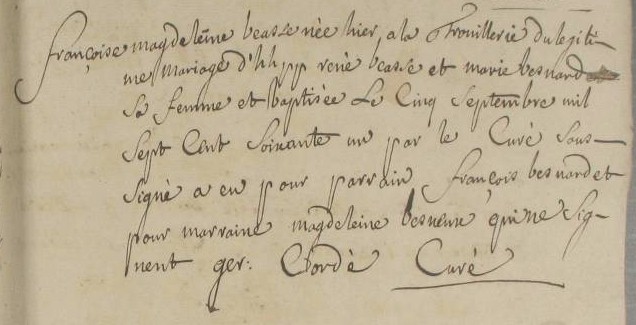 françoise magdeleine beasse née hier a la Trouillerie du legiti-
me Mariage d'hh pp rené beasse et marie besnard
Sa femme et baptisée Le Cinq Septembre mil
Sept Cent Soixante un par le Curé Sous-
Signé a eu pour parrain françois besnard et
pour marraine magdeleine qui ne Sig-
nent ger: Cordé Curé